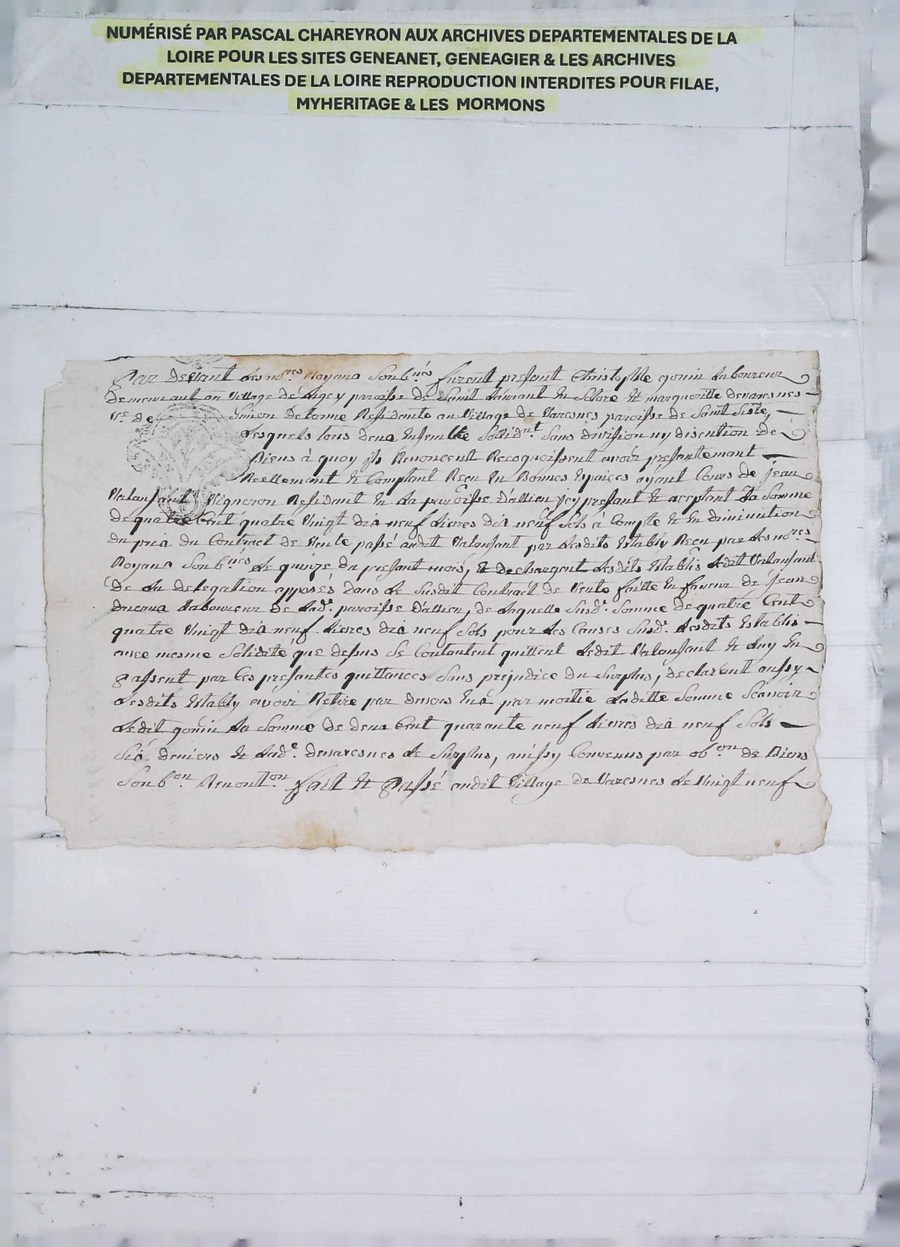 NUMÉRISÉ PAR PASCAL CHAREYRON AUX ARCHIVES DEPARTEMENTALES DE LA
LOIRE POUR LES SITES GENEANET, GENEAGIER & LES ARCHIVES
DEPARTEMENTALES DE LA LOIRE REPRODUCTION INTERDITES POUR FILAE,
MYHERITAGE & LES MORMONS
Par devant les no.res Royaux Soub.nés furent présent Christophle gonin Laboureur
demeurant au village de paroisse de Saint et marguerite devaresnes
v.e de Simon delorme Residente au village de Varesnes paroisse de Saint Sixte
Lesquels tous deux Ensemble Sollid.nt Sans division ny discution de
Biens à quoy ils Renoncent Recognoissent avoir presentement
Reellement et Comptant Reçu En Bonnes Espaices ayant Cours de Jean
Valansant Vigneron Residant En La parroisse D'allieu ycy present et acceptant La Somme
de quatre Cent quatre Vingt dix neuf Livres dix neuf Sols à Compte et En diminution
du prix du Contract de Vente passé audit Valansant par Lesdits Estably Reçu par Les no.res
Royaux Soub.nés Le quinze du present mois, et deschargent Lesdits Establis Ledit Valansant
de La delegation apposés dans Le Susdit Contrait de Vente faitte En faveur de Jean
Laboureur de Lad.e paroisse D'allieu, de Laquelle Susd.e Somme de quatre Cent
quatre Vingt dix neuf Livres dix neuf Sols pour Les Causes Susd.e Lesdits Establis
avec mesme Solidité que dessus Se Contantent quittent Ledit Valansant et Luy En
passent par Ces presantes quittances Sans prejudice du Surplus, declarent aussy
Lesdits Estably avoir Retiré par devers Eux par moitié Laditte Somme Scavoir
Ledit gonin La Somme de deux Cent quarante neuf Livres dix neuf Sols
Six deniers et Lad.e devaresnes Le Surplus, ainssy Convenus par ob.on de Biens
Soub.on Renontt.on fait et passé audit Village de Varesnes Le Vingt neuf